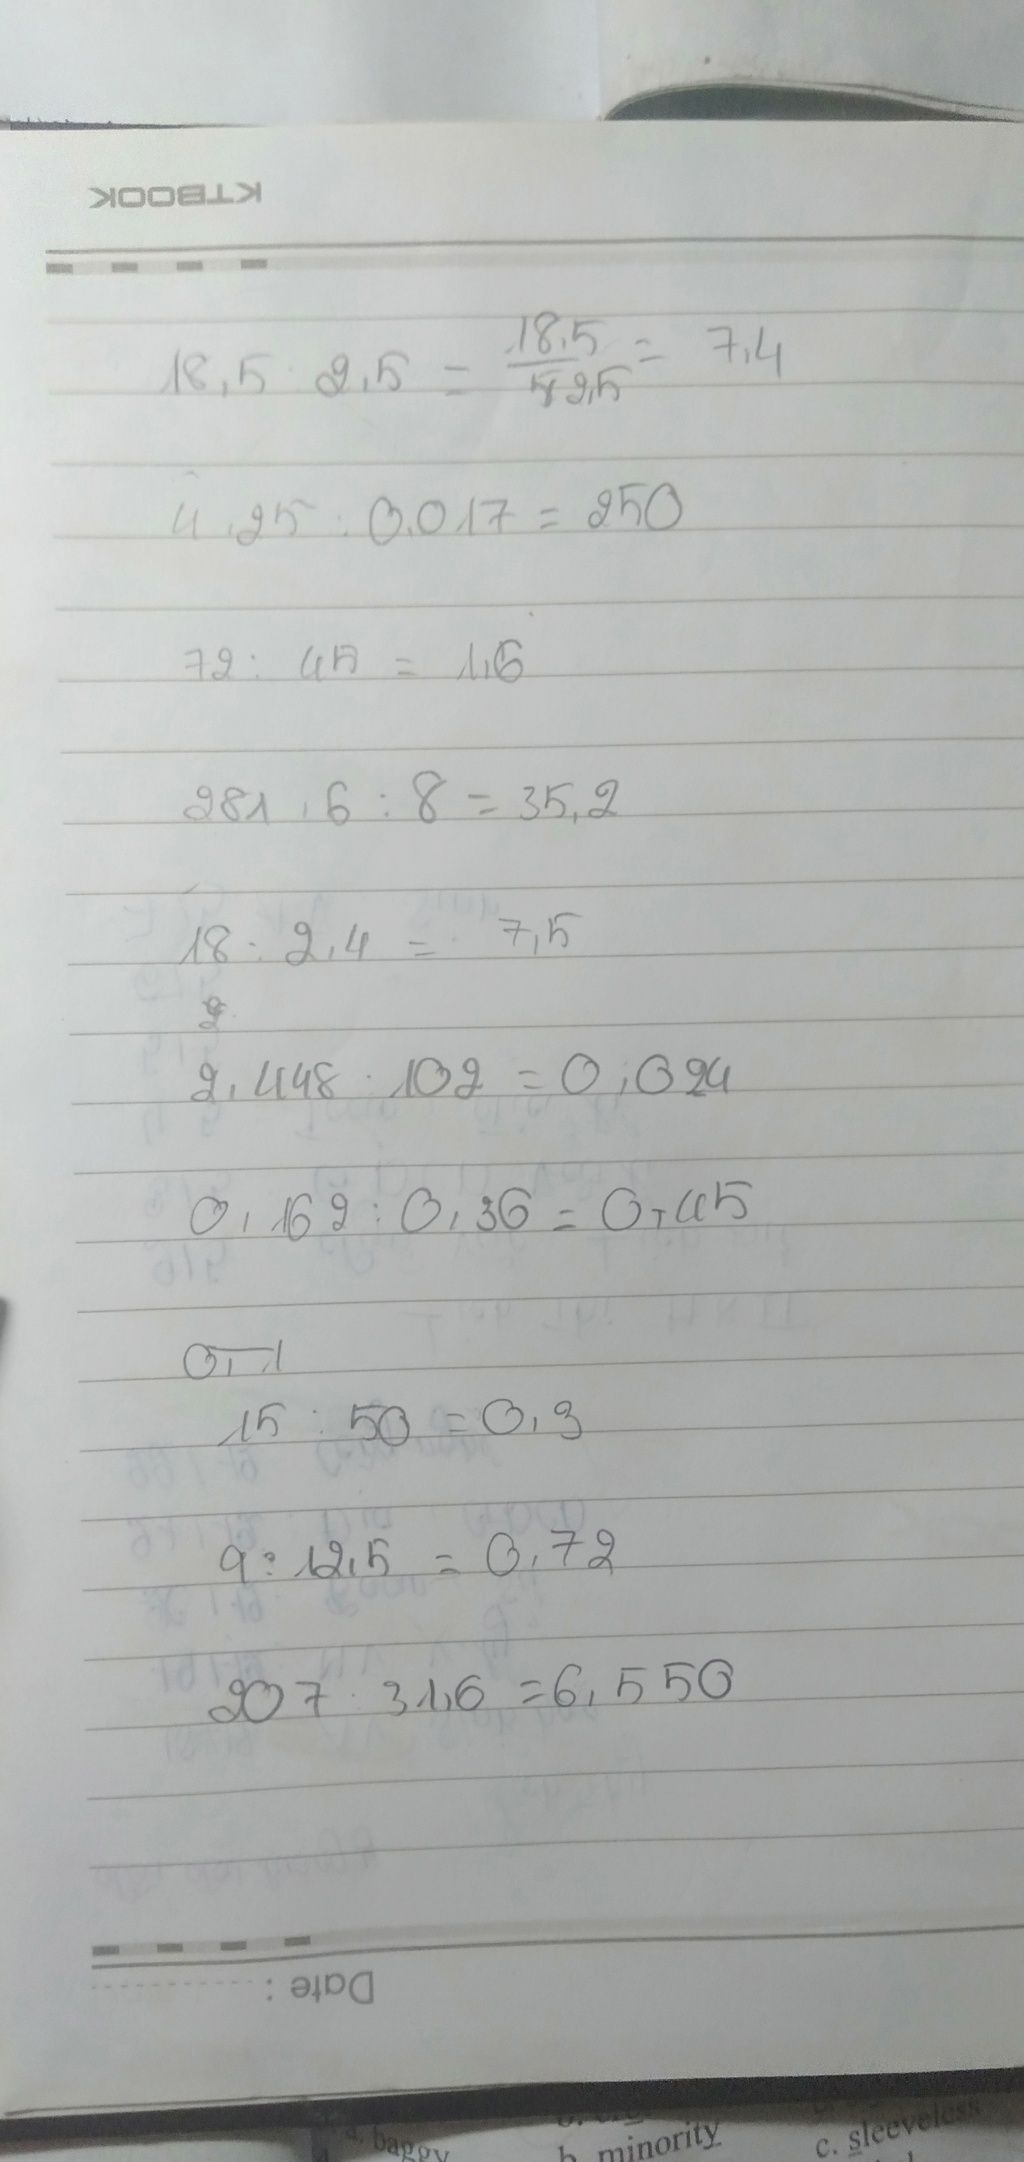 KTBOOK
18,5 : 2,5 = 18,5 / 2,5 = 7,4
4,25 : 0,017 = 250
72 : 45 = 1,6
281,6 : 8 = 35,2
18 : 2,4 = 7,5
2
2,448 : 102 = 0,024
0,162 : 0,36 = 0,45
15 : 50 = 0,3
9 : 12,5 = 0,72
207 : 31,6 = 6,550
Date :
baggy
b. minority
c. sleeveless